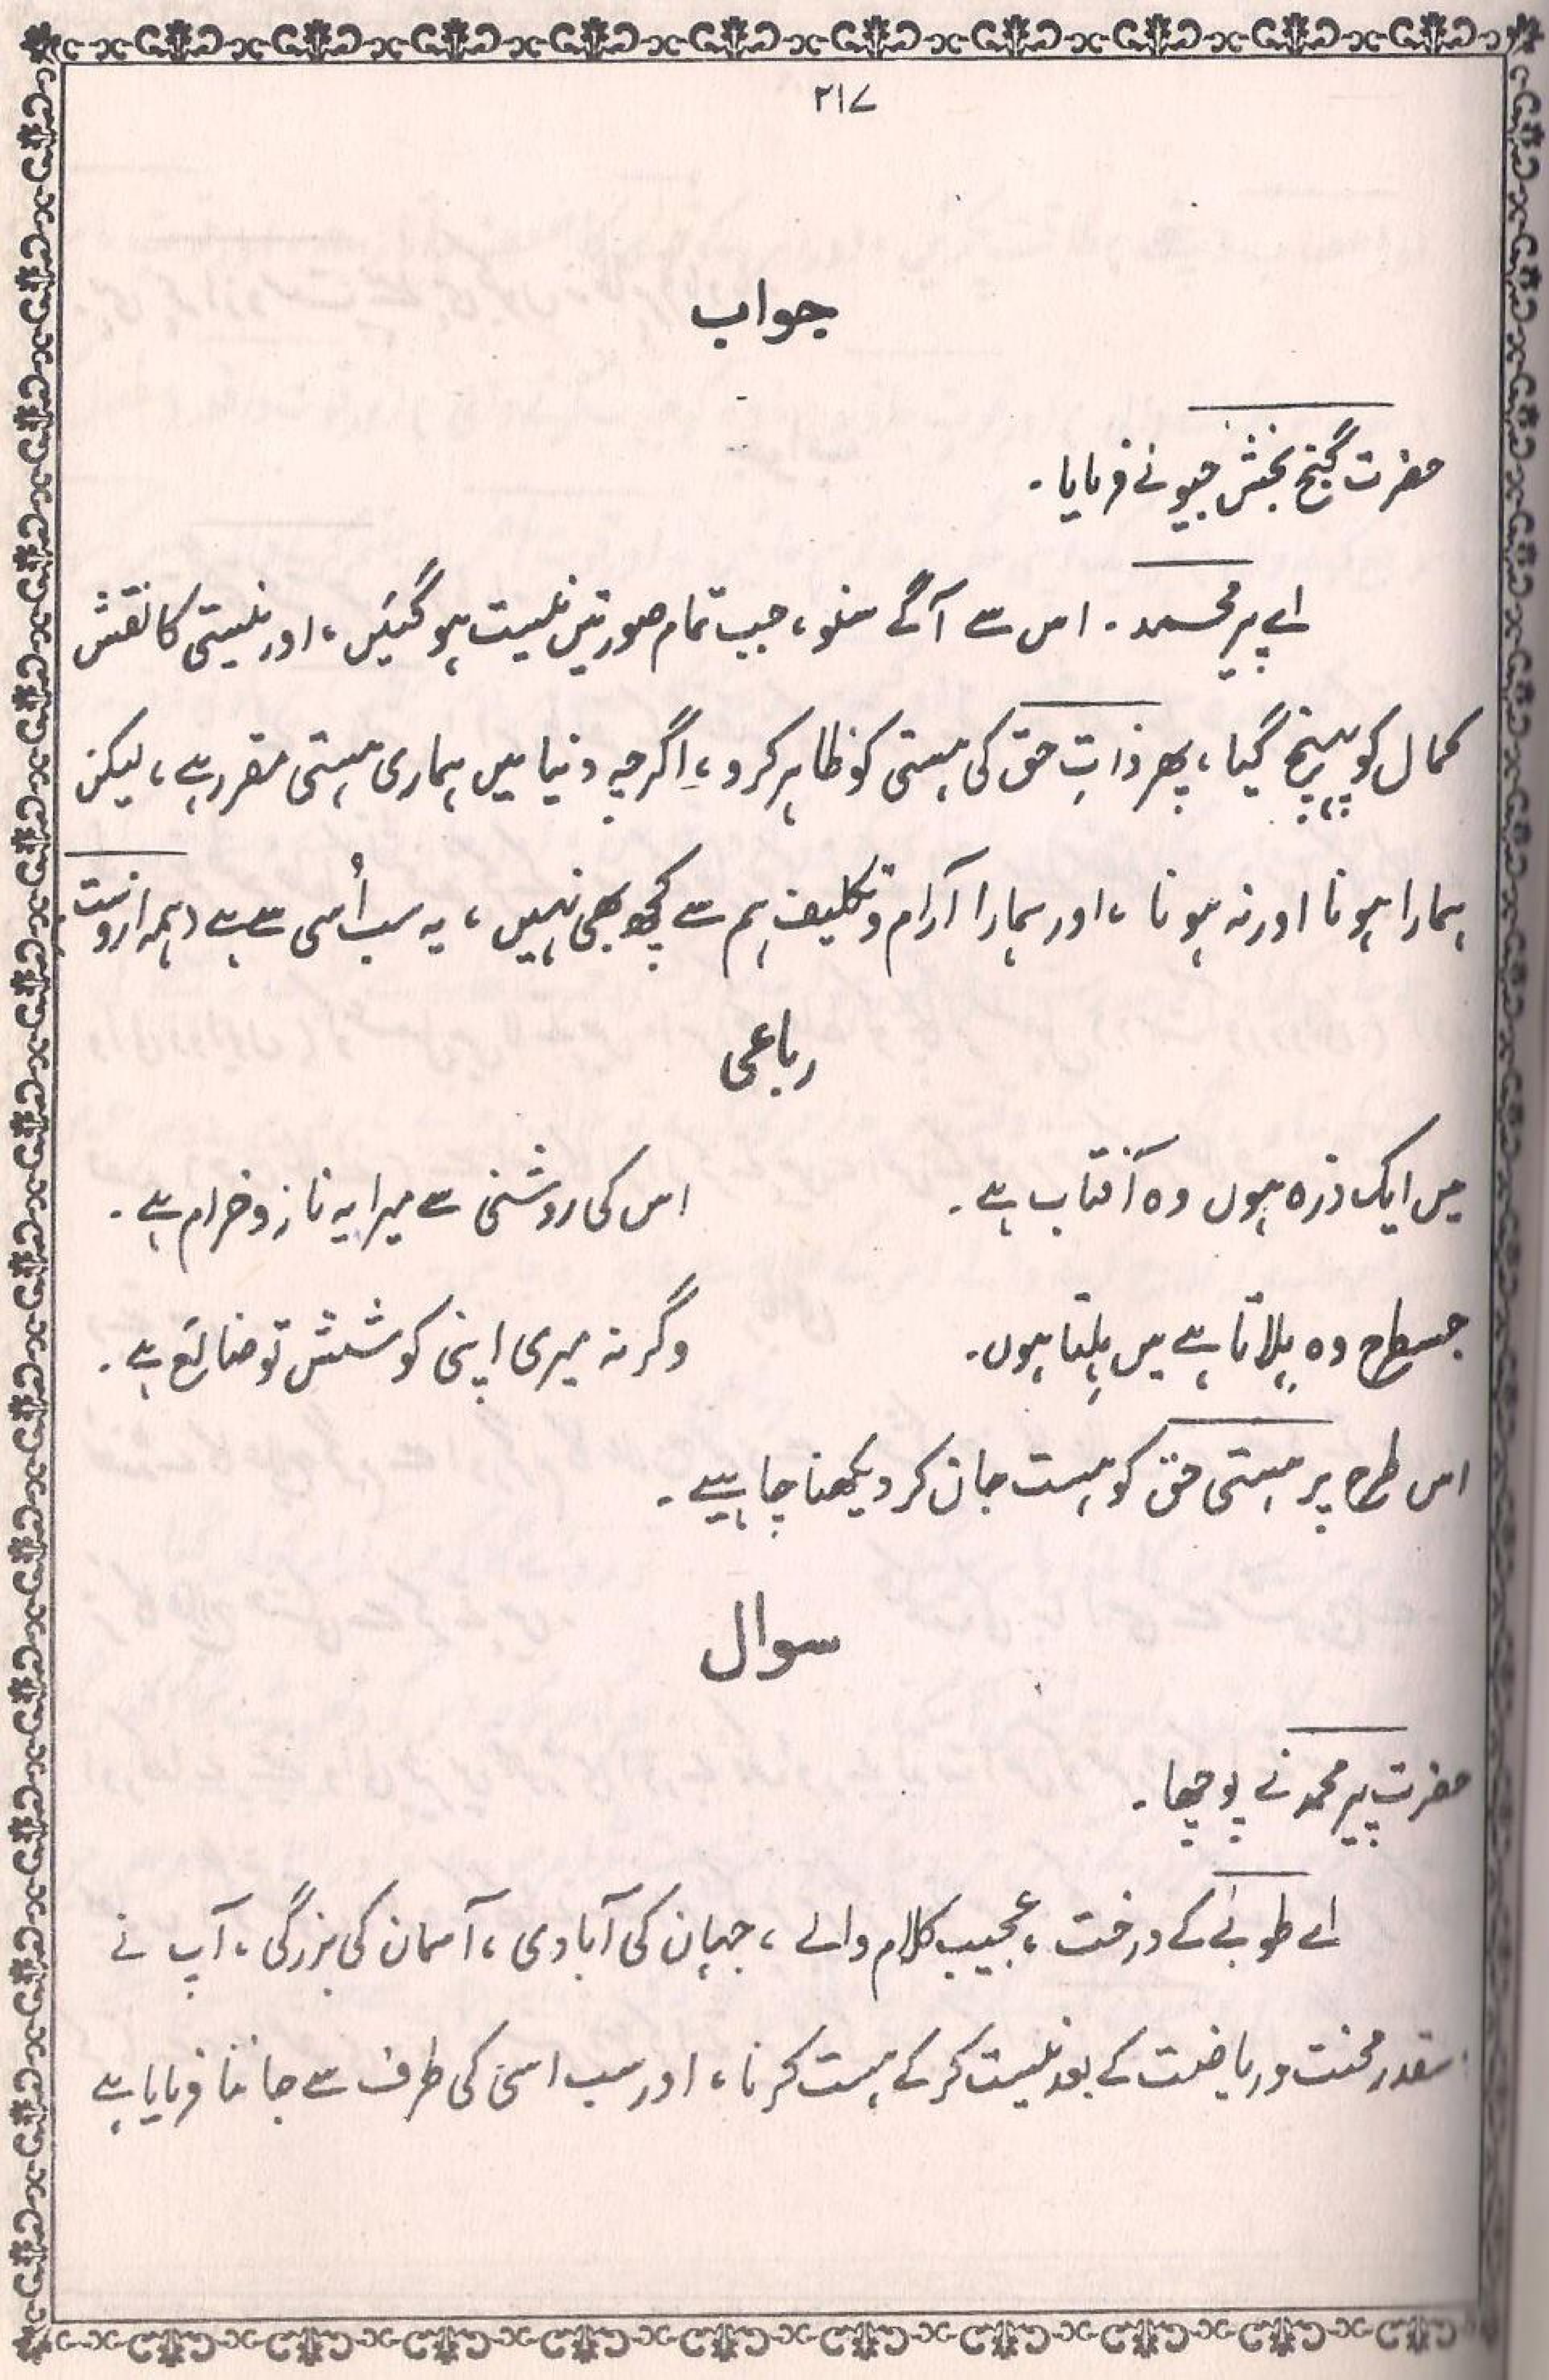 ۲۱۷
جواب
حضرت گنج بخش جیو نے فرمایا۔
اے پیر محمد۔ اس سے آگے سنو، جب تمام صورتیں نیست ہو گئیں، اور نیستی کا نقش
کمال کو پہنچ گیا، پھر ذاتِ حق کی ہستی کو ظاہر کرو، اگرچہ دنیا میں ہماری ہستی مقرر ہے، لیکن
ہمارا ہونا اور نہ ہونا، اور ہمارا آرام و تکلیف ہم سے کچھ بھی نہیں، یہ سب اُسی سے ہے (ہمہ ازوست)
رباعی
میں ایک ذرہ ہوں وہ آفتاب ہے۔ اس کی روشنی سے میرا یہ ناز و خرام ہے۔
جسطرح وہ ہِلاتا ہے میں ہِلتا ہوں۔ وگرنہ میری اپنی کوشش تو ضائع ہے۔
اس طرح پر ہستی حق کو ہست جان کر دیکھنا چاہیے۔
سوال
حضرت پیر محمد نے پوچھا۔
اے طوبیٰ کے درخت، عجیب کلام والے، جہان کی آبادی، آسمان کی بزرگی، آپ نے
اسقدر محنت و ریاضت کے بعد نیست کر کے ہست کرنا، اور سب اسی کی طرف سے جاننا فرمایا ہے